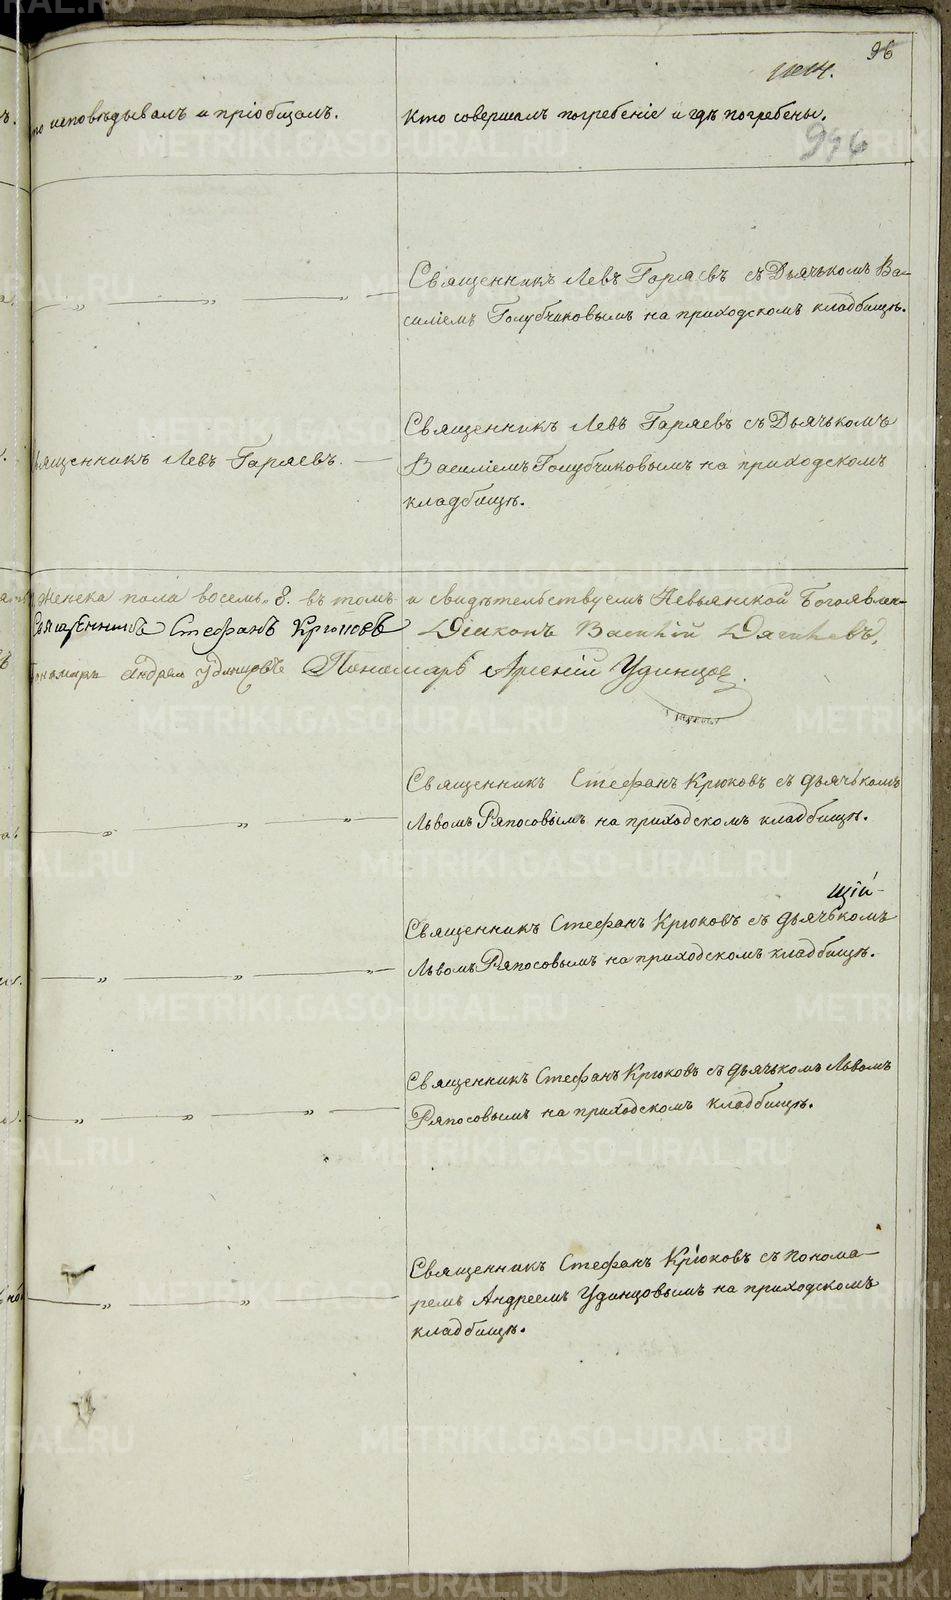 96
994
Кто исповѣдывалъ и пріобщалъ.
Кто совершалъ погребеніе и гдѣ погребены.
Священникъ Левъ Гаряевъ съ Дьячькомъ Ва-
силіемъ Голубчиковымъ на приходскомъ кладбищѣ.
Священникъ Левъ Гаряевъ.
Священникъ Левъ Гаряевъ съ Дьячькомъ
Василіемъ Голубчиковымъ на приходскомъ
кладбищѣ.
женска пола восемь 8. въ томъ и свидѣтельствуемъ Невьянской Богоявлен-
Священникъ Стефанъ Крюковъ Діаконъ Василій
Пономарь Андрей Удинцовъ Пономарь Арсеній Удинцов.
Священникъ Стефанъ Крюковъ съ дьячькомъ
Львомъ Ряпосовымъ на приходскомъ кладбищѣ.
щій
Священникъ Стефанъ Крюковъ съ дьячькомъ
Львомъ Ряпосовымъ на приходскомъ кладбищѣ.
Священникъ Стефанъ Крюковъ съ дьячькомъ Львомъ
Ряпосовымъ на приходскомъ кладбищѣ.
Священникъ Стефанъ Крюковъ съ понома-
ремъ Андреемъ Удинцовымъ на приходскомъ
кладбищѣ.
METRIKI.GASO-URAL.RU